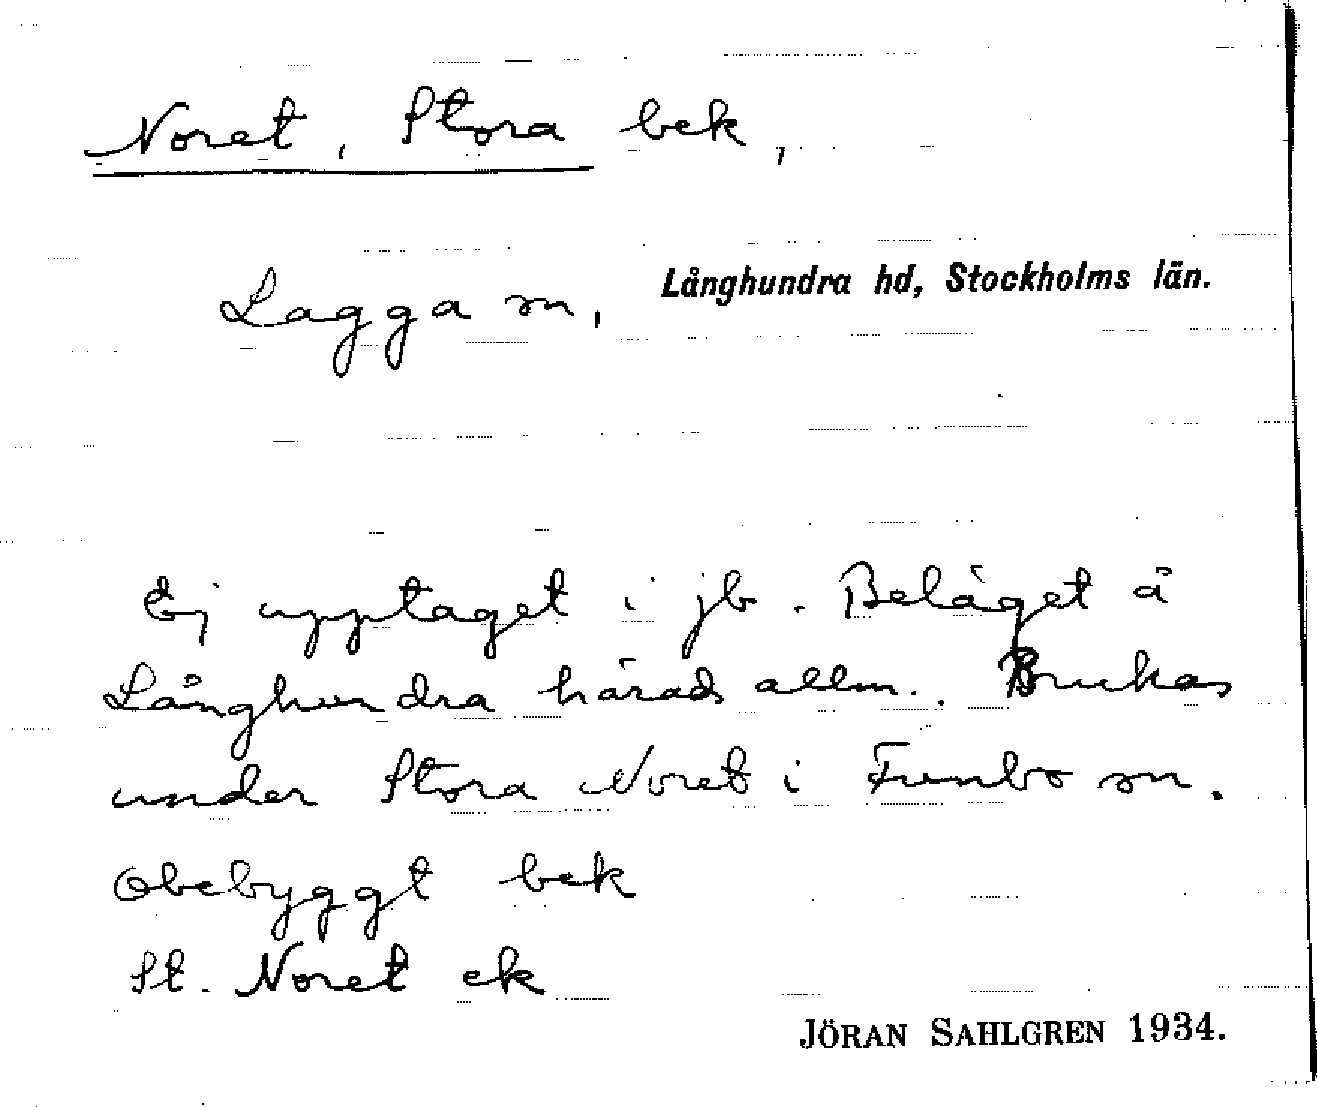 Noret, Stora bek,
Lagga sn, Långhundra hd, Stockholms län.
Ej upptaget i jb. Beläget å
Långhundra härads allm. Brukas
under Stora Noret i Funbo sn.
Obebyggt bek
St. Noret ek
JÖRAN SAHLGREN 1934.